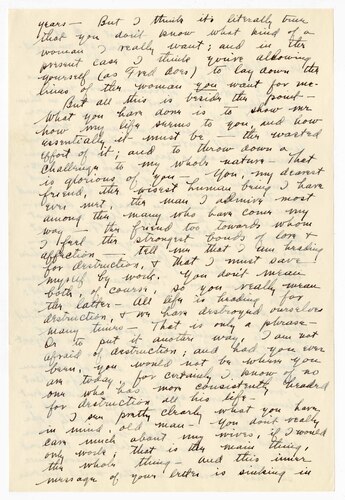 years — But I think it's literally true
that you don't know what kind of a
woman I really want; and in the
present case I think you're allowing
yourself (as Fred does) to lay down the
lines of the woman you want for me.
But all this is beside the point —
What you have done is to show me
how my life seems to you, and how
essentially it must be — the wasted
effort of it; and to throw down a
challenge to my whole nature — That
is glorious of you — You, my dearest
friend, the wisest human being I have
ever met, the man I admire most
among the many who have come my
way — the friend too towards whom
I feel the strongest bonds of love &
affection — tell me that I am heading
for destruction, & that I must save
myself by work. You don't mean
both, of course, so you really mean
the latter — All life is heading for
destruction, & we have destroyed ourselves
many times — That is only a phrase —
Or to put it another way, I am not
afraid of destruction; and had you ever
been, you would not be where you
are today, for certainly I know of no
one who has more consistently headed
for destruction all his life —
I see pretty clearly what you have
in mind, old man — You don't really
care much about my wives, if I would
only work; that is the main thing,
the whole thing — and this inner
message of your letter is sinking in